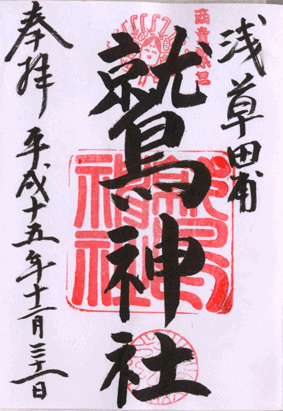 浅草田甫
商賣繁昌
鷲神社
鷲神社
奉拝 平成十五年十二月三十一日